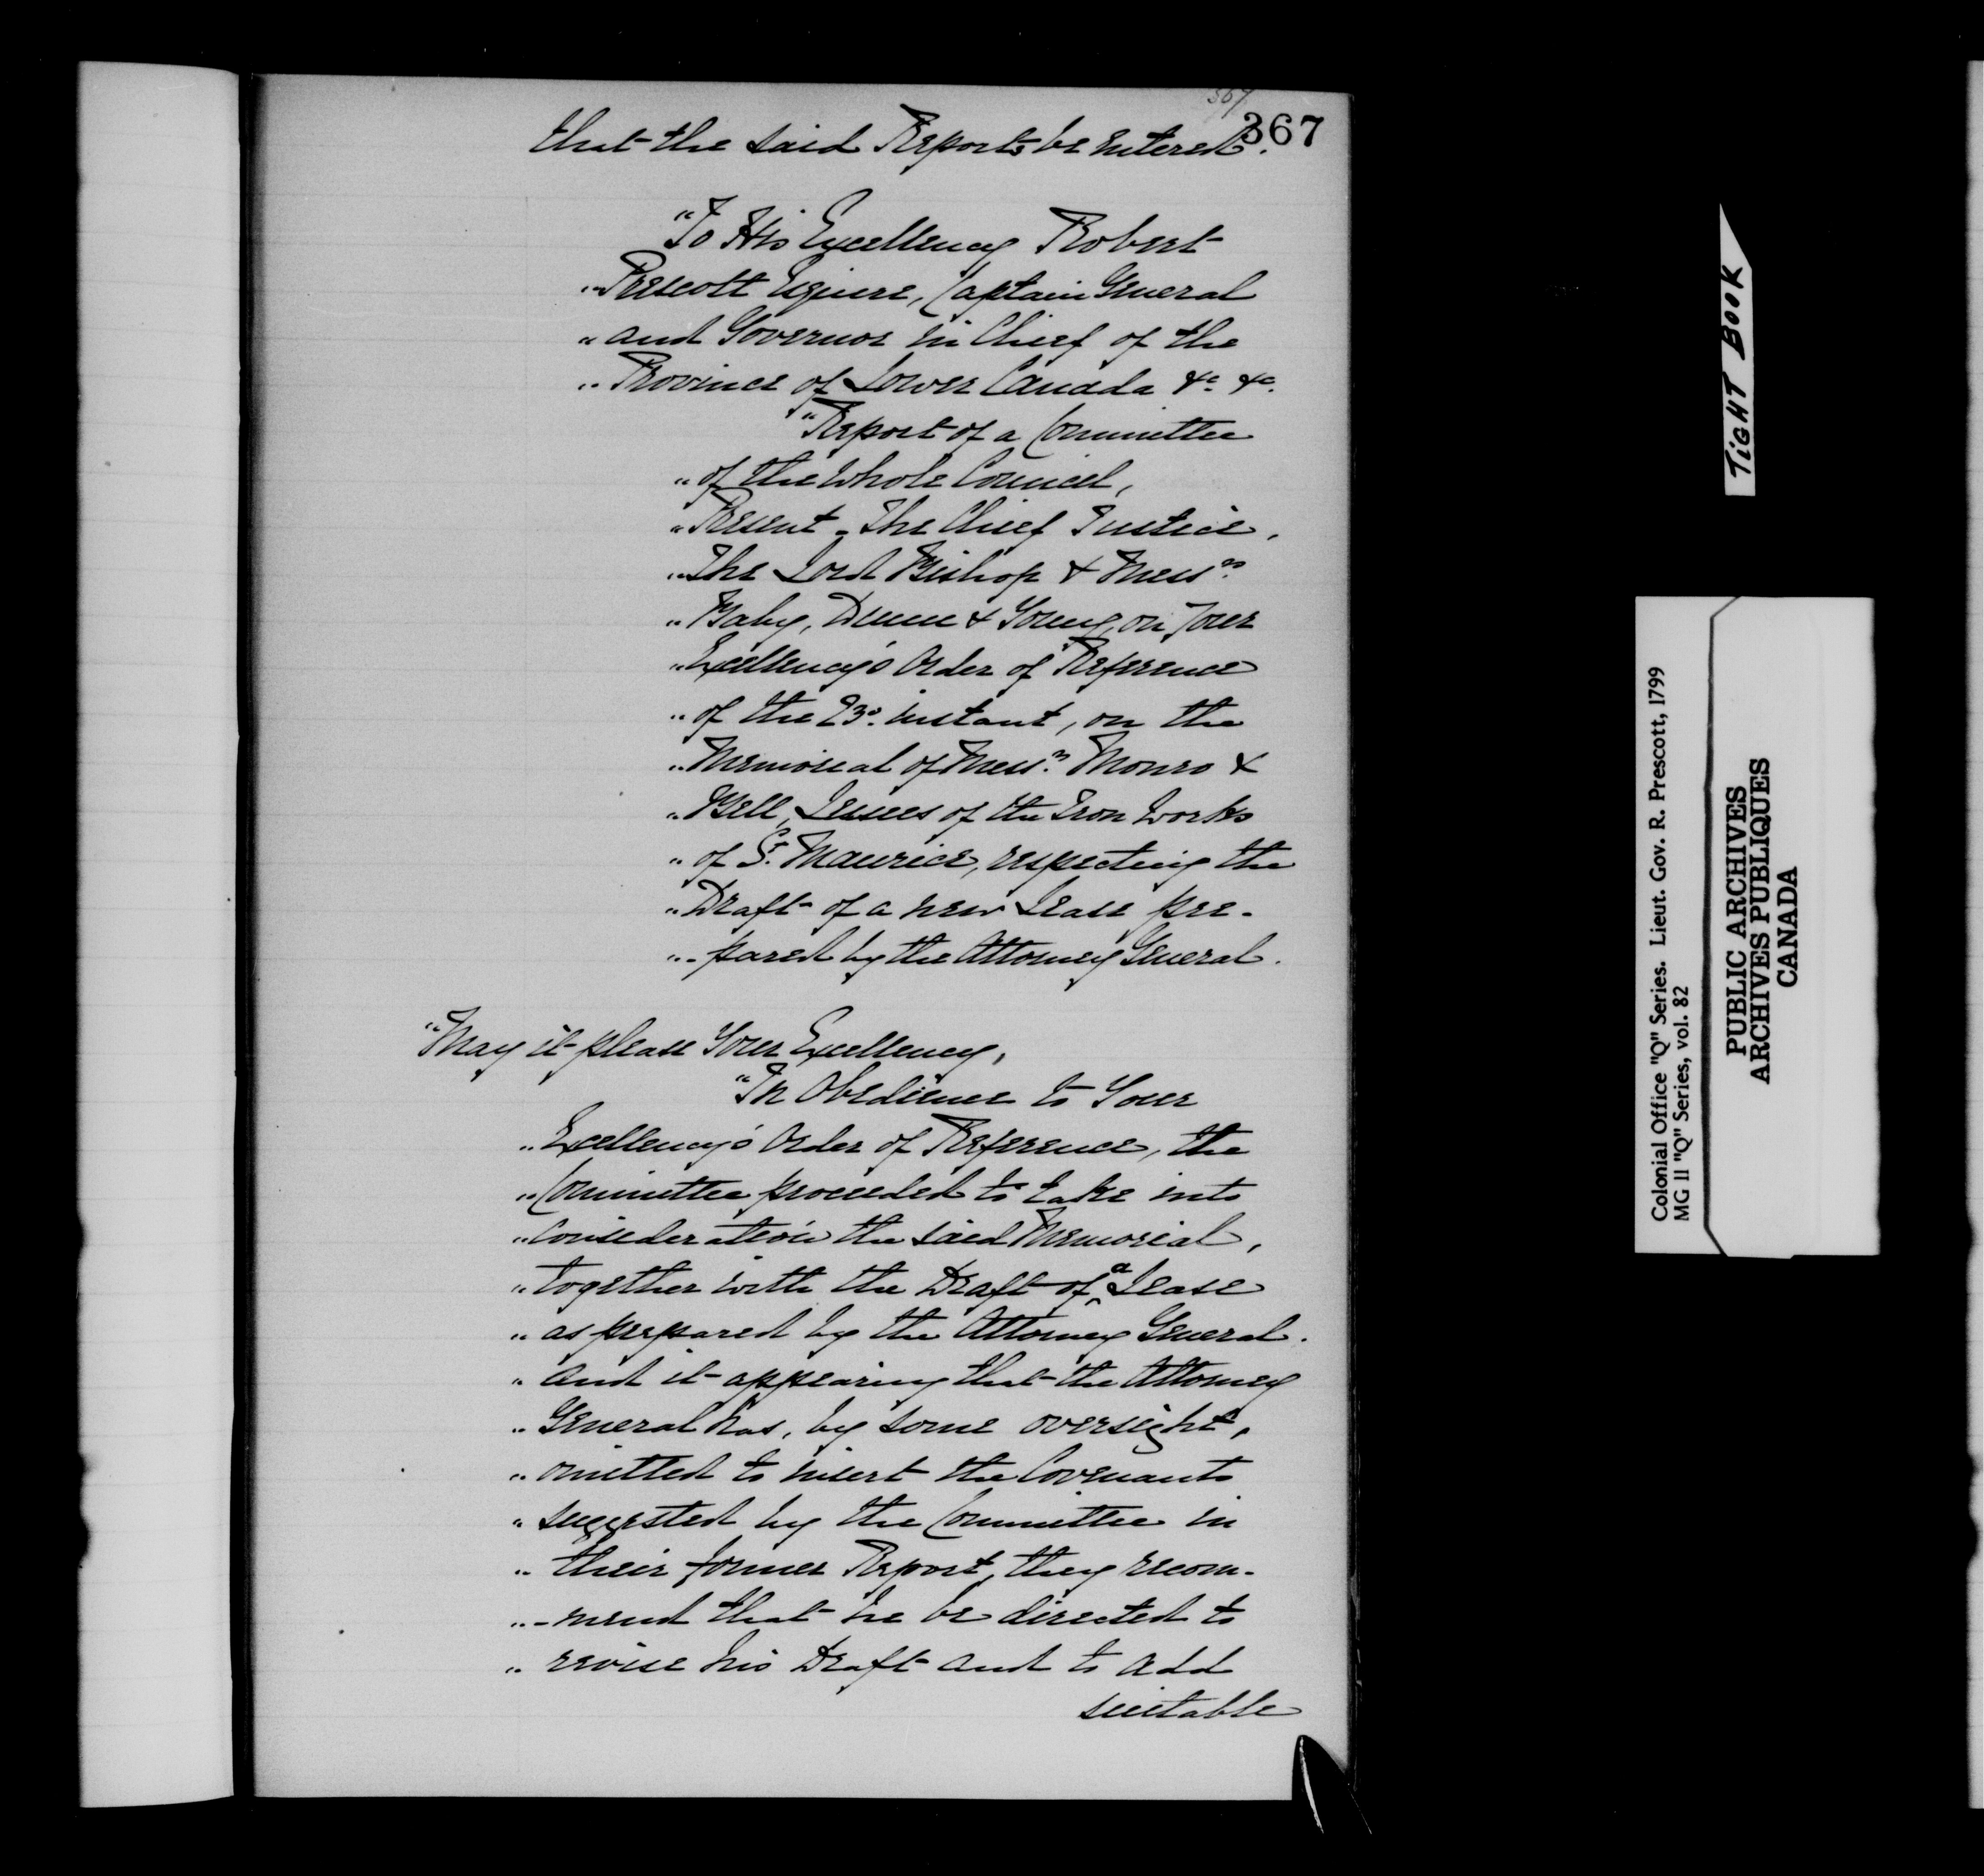 367
367
that the said Reports be entered.
"To His Excellency Robert
"Prescott Esquire, Captain General
"and Governor in Chief of the
"Province of Lower Canada &c. &c.
"Report of a Committee
"of the whole Council,
"Present - The Chief Justice,
"The Lord Bishop & Messrs.
"Baby, Dunn & Young, on Your
"Excellency's Order of Reference
"of the 23d. instant, on the
"Memorial of Messrs. Monro &
"Bell, Lessees of the Iron Works
"of St. Maurice, respecting the
"Draft of a new Lease pre-
"-pared by the Attorney General.
"May it please Your Excellency,
"In Obedience to Your
"Excellency's Order of Reference, the
"Committee proceeded to take into
"consideration the said Memorial,
"together with the Draft of a Lease
"as prepared by the Attorney General.
"and it appearing that the Attorney
"General has, by some oversight,
"omitted to insert the Covenants
"suggested by the Committee in
"their former Report, they recom-
"-mend that he be directed to
"revise his Draft and to add
suitable
TIGHT BOOK
Colonial Office "Q" Series. Lieut. Gov. R. Prescott, 1799
MG 11 "Q" Series, vol. 82
PUBLIC ARCHIVES
ARCHIVES PUBLIQUES
CANADA